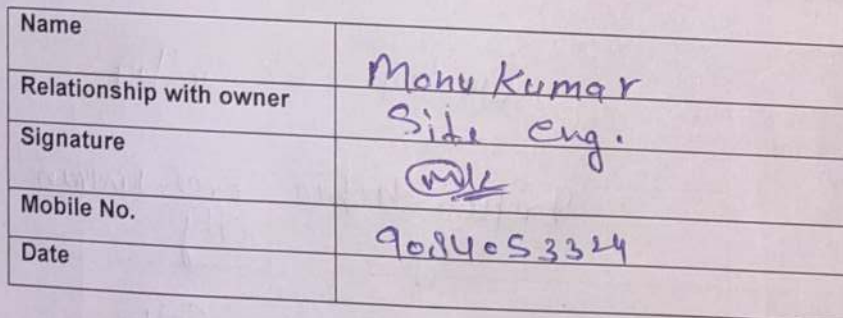 Name Monu Kumar
Relationship with owner Side eng.
Signature MK
Mobile No. 9084053324
Date